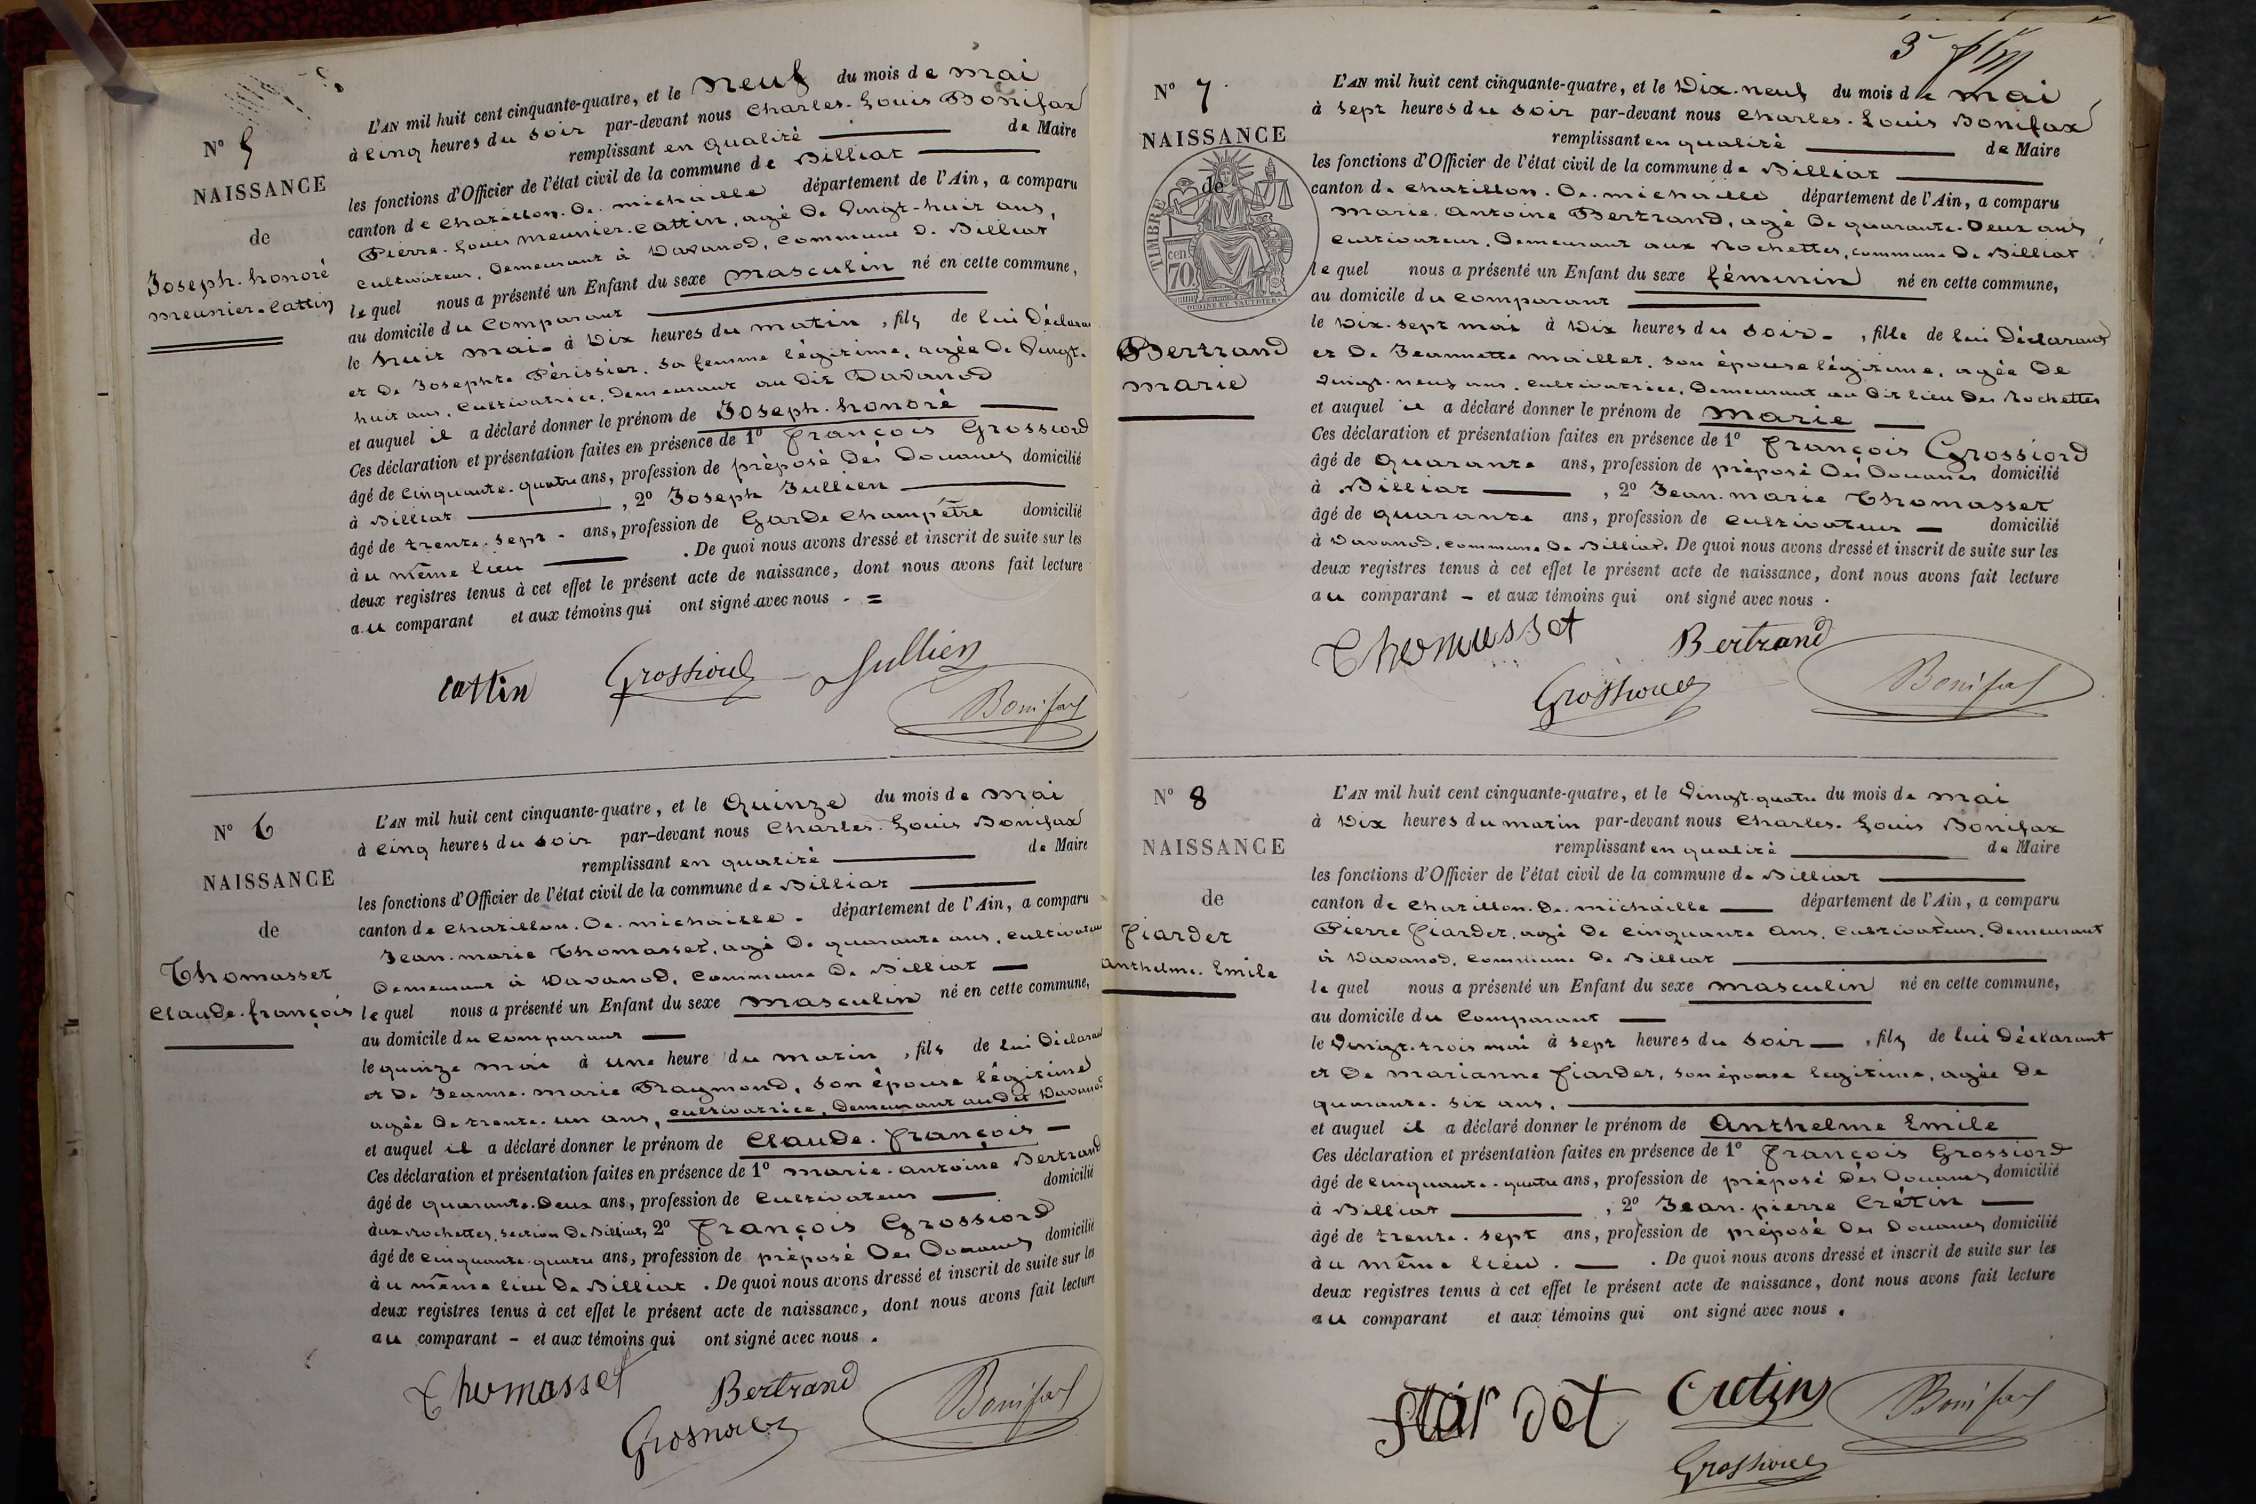 N° 5
NAISSANCE
de
Joseph. honoré
meunier-Cattin
L'AN mil huit cent cinquante-quatre, et le neuf du mois de mai
à cinq heures du soir par-devant nous Charles-Louis Bonifax
remplissant en qualité de Maire
les fonctions d'Officier de l'état civil de la commune de Billiat
canton de Chatillon. De. michaille département de l'Ain, a comparu
Pierre-Louis meunier-Cattin, agé De Vingt-huit ans,
cultivateur, Demeurant à Davanod, commune D. Billiat
lequel nous a présenté un Enfant du sexe masculin né en cette commune,
au domicile du Comparant
le huit mai à Dix heures du matin, fils de lui Déclarant
et De Josephte Périssier, sa femme légitime, agée De Vingt-
huit ans, cultivatrice, Demeurant au dit Davanod
et auquel il a déclaré donner le prénom de Joseph. honoré
Ces déclaration et présentation faites en présence de 1° françois Grossiord
âgé de cinquante-quatre ans, profession de préposé Des Douanes domicilié
à Billiat , 2° Joseph Jullien
âgé de trente-sept - ans, profession de Garde champêtre domicilié
au même lieu . De quoi nous avons dressé et inscrit de suite sur les
deux registres tenus à cet effet le présent acte de naissance, dont nous avons fait lecture
au comparant et aux témoins qui ont signé avec nous . =
cattin Grossiord Jullien
Bonifax
N° 6
NAISSANCE
de
Thomasset
Claude-françois
L'AN mil huit cent cinquante-quatre, et le Quinze du mois de mai
à cinq heures du soir par-devant nous Charles-Louis Bonifax
remplissant en qualité de Maire
les fonctions d'Officier de l'état civil de la commune de Billiat
canton de Chatillon. De. michaille - département de l'Ain, a comparu
Jean-marie Thomasset, agé De quarante ans, cultivateur
Demeurant à Davanod, Commune De Billiat
lequel nous a présenté un Enfant du sexe masculin né en cette commune,
au domicile du Comparant
le quinze mai à une heure du matin, fils de lui Déclarant
et De Jeanne-marie Raymond, son épouse légitime
agée De trente-un ans, cultivatrice, Demeurant audit Davanod
et auquel il a déclaré donner le prénom de Claude-françois
Ces déclaration et présentation faites en présence de 1° marie-antoine Bertrand
âgé de quarante-Deux ans, profession de Cultivateur domicilié
aux Rochettes, section De Billiat, 2° françois Grossiord
âgé de cinquante-quatre ans, profession de préposé Des Douanes domicilié
au même lieu De Billiat . De quoi nous avons dressé et inscrit de suite sur les
deux registres tenus à cet effet le présent acte de naissance, dont nous avons fait lecture
au comparant - et aux témoins qui ont signé avec nous .
Thomasset Bertrand Bonifax
Grossiord
3
N° 7
NAISSANCE
de
TIMBRE
70 cen
Bertrand
marie
L'AN mil huit cent cinquante-quatre, et le Dix-neuf du mois de mai
à sept heures du soir par-devant nous Charles-Louis Bonifax
remplissant en qualité de Maire
les fonctions d'Officier de l'état civil de la commune de Billiat
canton de Chatillon. De. michaille département de l'Ain, a comparu
marie-antoine Bertrand, agé De quarante-Deux ans,
cultivateur, Demeurant aux Rochettes, commune De Billiat
lequel nous a présenté un Enfant du sexe féminin né en cette commune,
au domicile du comparant
le Dix-sept mai à Dix heures du soir - , fille de lui Déclarant
et De Jeannette maillet, son épouse légitime, agée De
vingt-neuf ans, cultivatrice, Demeurant au dit lieu Des Rochettes
et auquel il a déclaré donner le prénom de marie
Ces déclaration et présentation faites en présence de 1° françois Grossiord
âgé de quarante ans, profession de préposé Des Douanes domicilié
à Billiat , 2° Jean-marie Thomasset
âgé de quarante ans, profession de cultivateur domicilié
à Davanod, commune De Billiat. De quoi nous avons dressé et inscrit de suite sur les
deux registres tenus à cet effet le présent acte de naissance, dont nous avons fait lecture
au comparant - et aux témoins qui ont signé avec nous .
Thomasset Bertrand
Grossiord Bonifax
N° 8
NAISSANCE
de
fiardet
anthelme. Emile
L'AN mil huit cent cinquante-quatre, et le Vingt-quatre du mois de mai
à Dix heures du matin par-devant nous Charles-Louis Bonifax
remplissant en qualité de Maire
les fonctions d'Officier de l'état civil de la commune de Billiat
canton de Chatillon. De. michaille département de l'Ain, a comparu
Pierre fiardet, agé De cinquante ans, cultivateur, Demeurant
à Davanod, commune De Billiat
lequel nous a présenté un Enfant du sexe masculin né en cette commune,
au domicile du Comparant
le Vingt-trois mai à sept heures du soir , fils de lui Déclarant
et De marianne fiardet, son épouse legitime, agée De
quarante-six ans,
et auquel il a déclaré donner le prénom de Anthelme Emile
Ces déclaration et présentation faites en présence de 1° françois Grossiord
âgé de cinquante-quatre ans, profession de préposé Des Douanes domicilié
à Billiat , 2° Jean-pierre Crétin
âgé de trente-sept ans, profession de préposé Des Douanes domicilié
au même lieu . De quoi nous avons dressé et inscrit de suite sur les
deux registres tenus à cet effet le présent acte de naissance, dont nous avons fait lecture
au comparant et aux témoins qui ont signé avec nous .
fiardet Cretin Bonifax
Grossiord